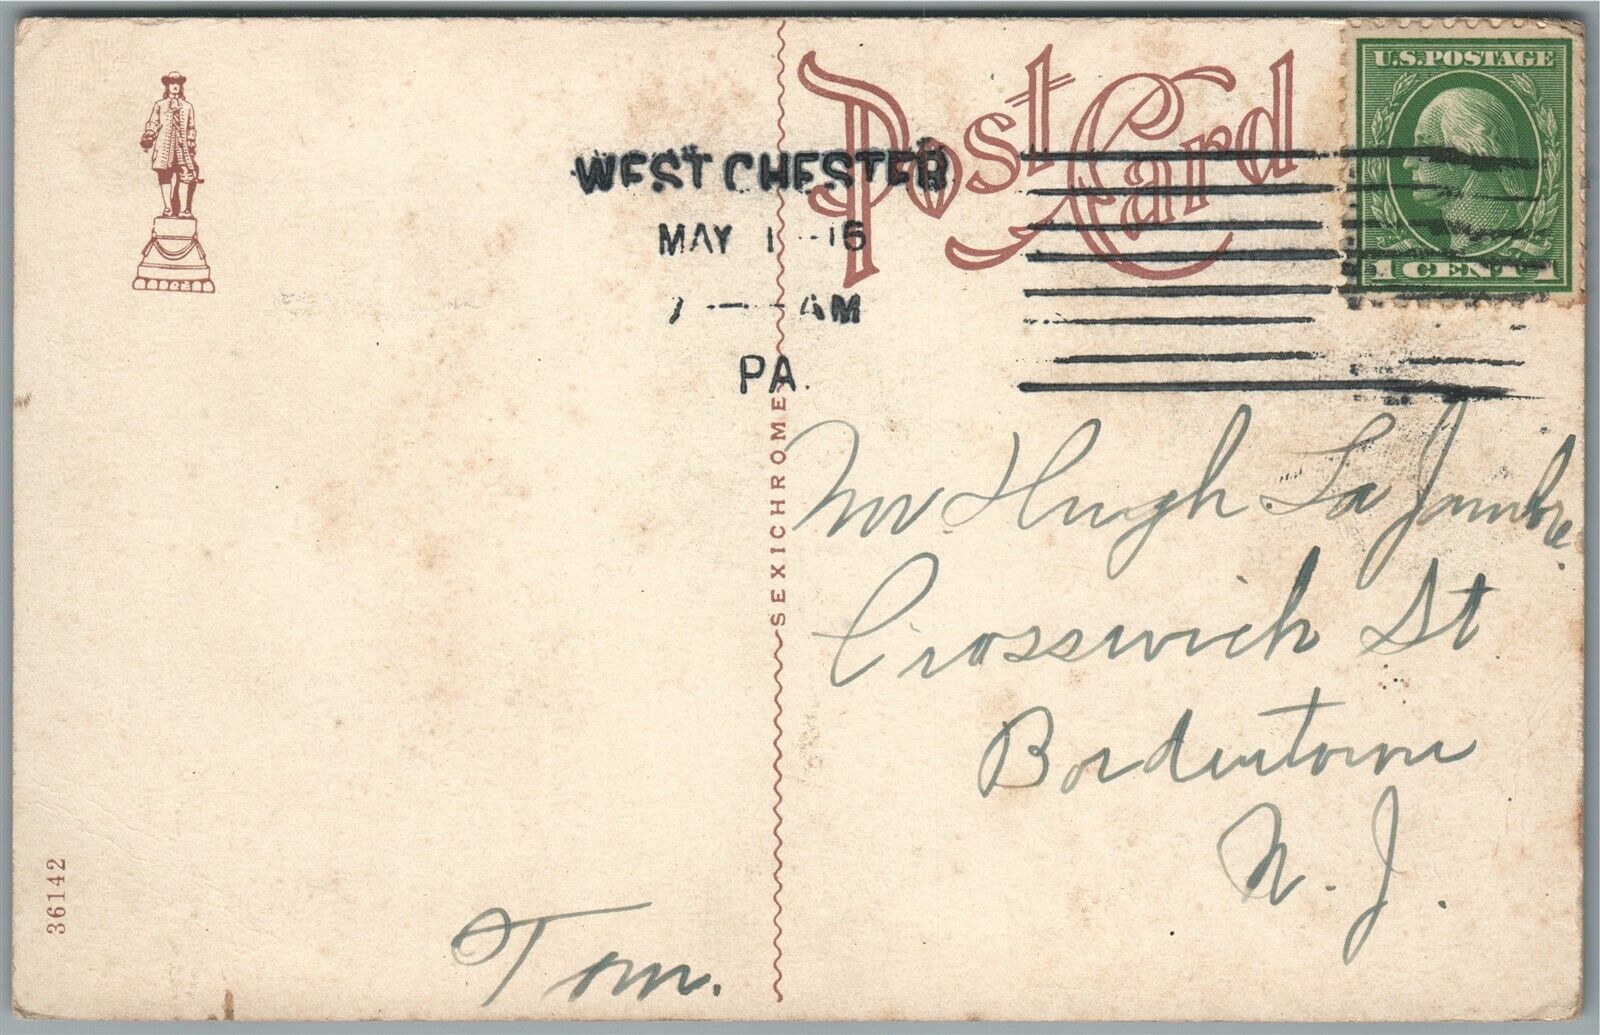 Post Card
U.S.POSTAGE
1 CENT 1
WEST CHESTER
MAY 1 -16
7 - AM
PA.
SEXICHROME
36142
Mr Hugh La Jambre
Crosswich St
Bordentown
N. J.
Tom.